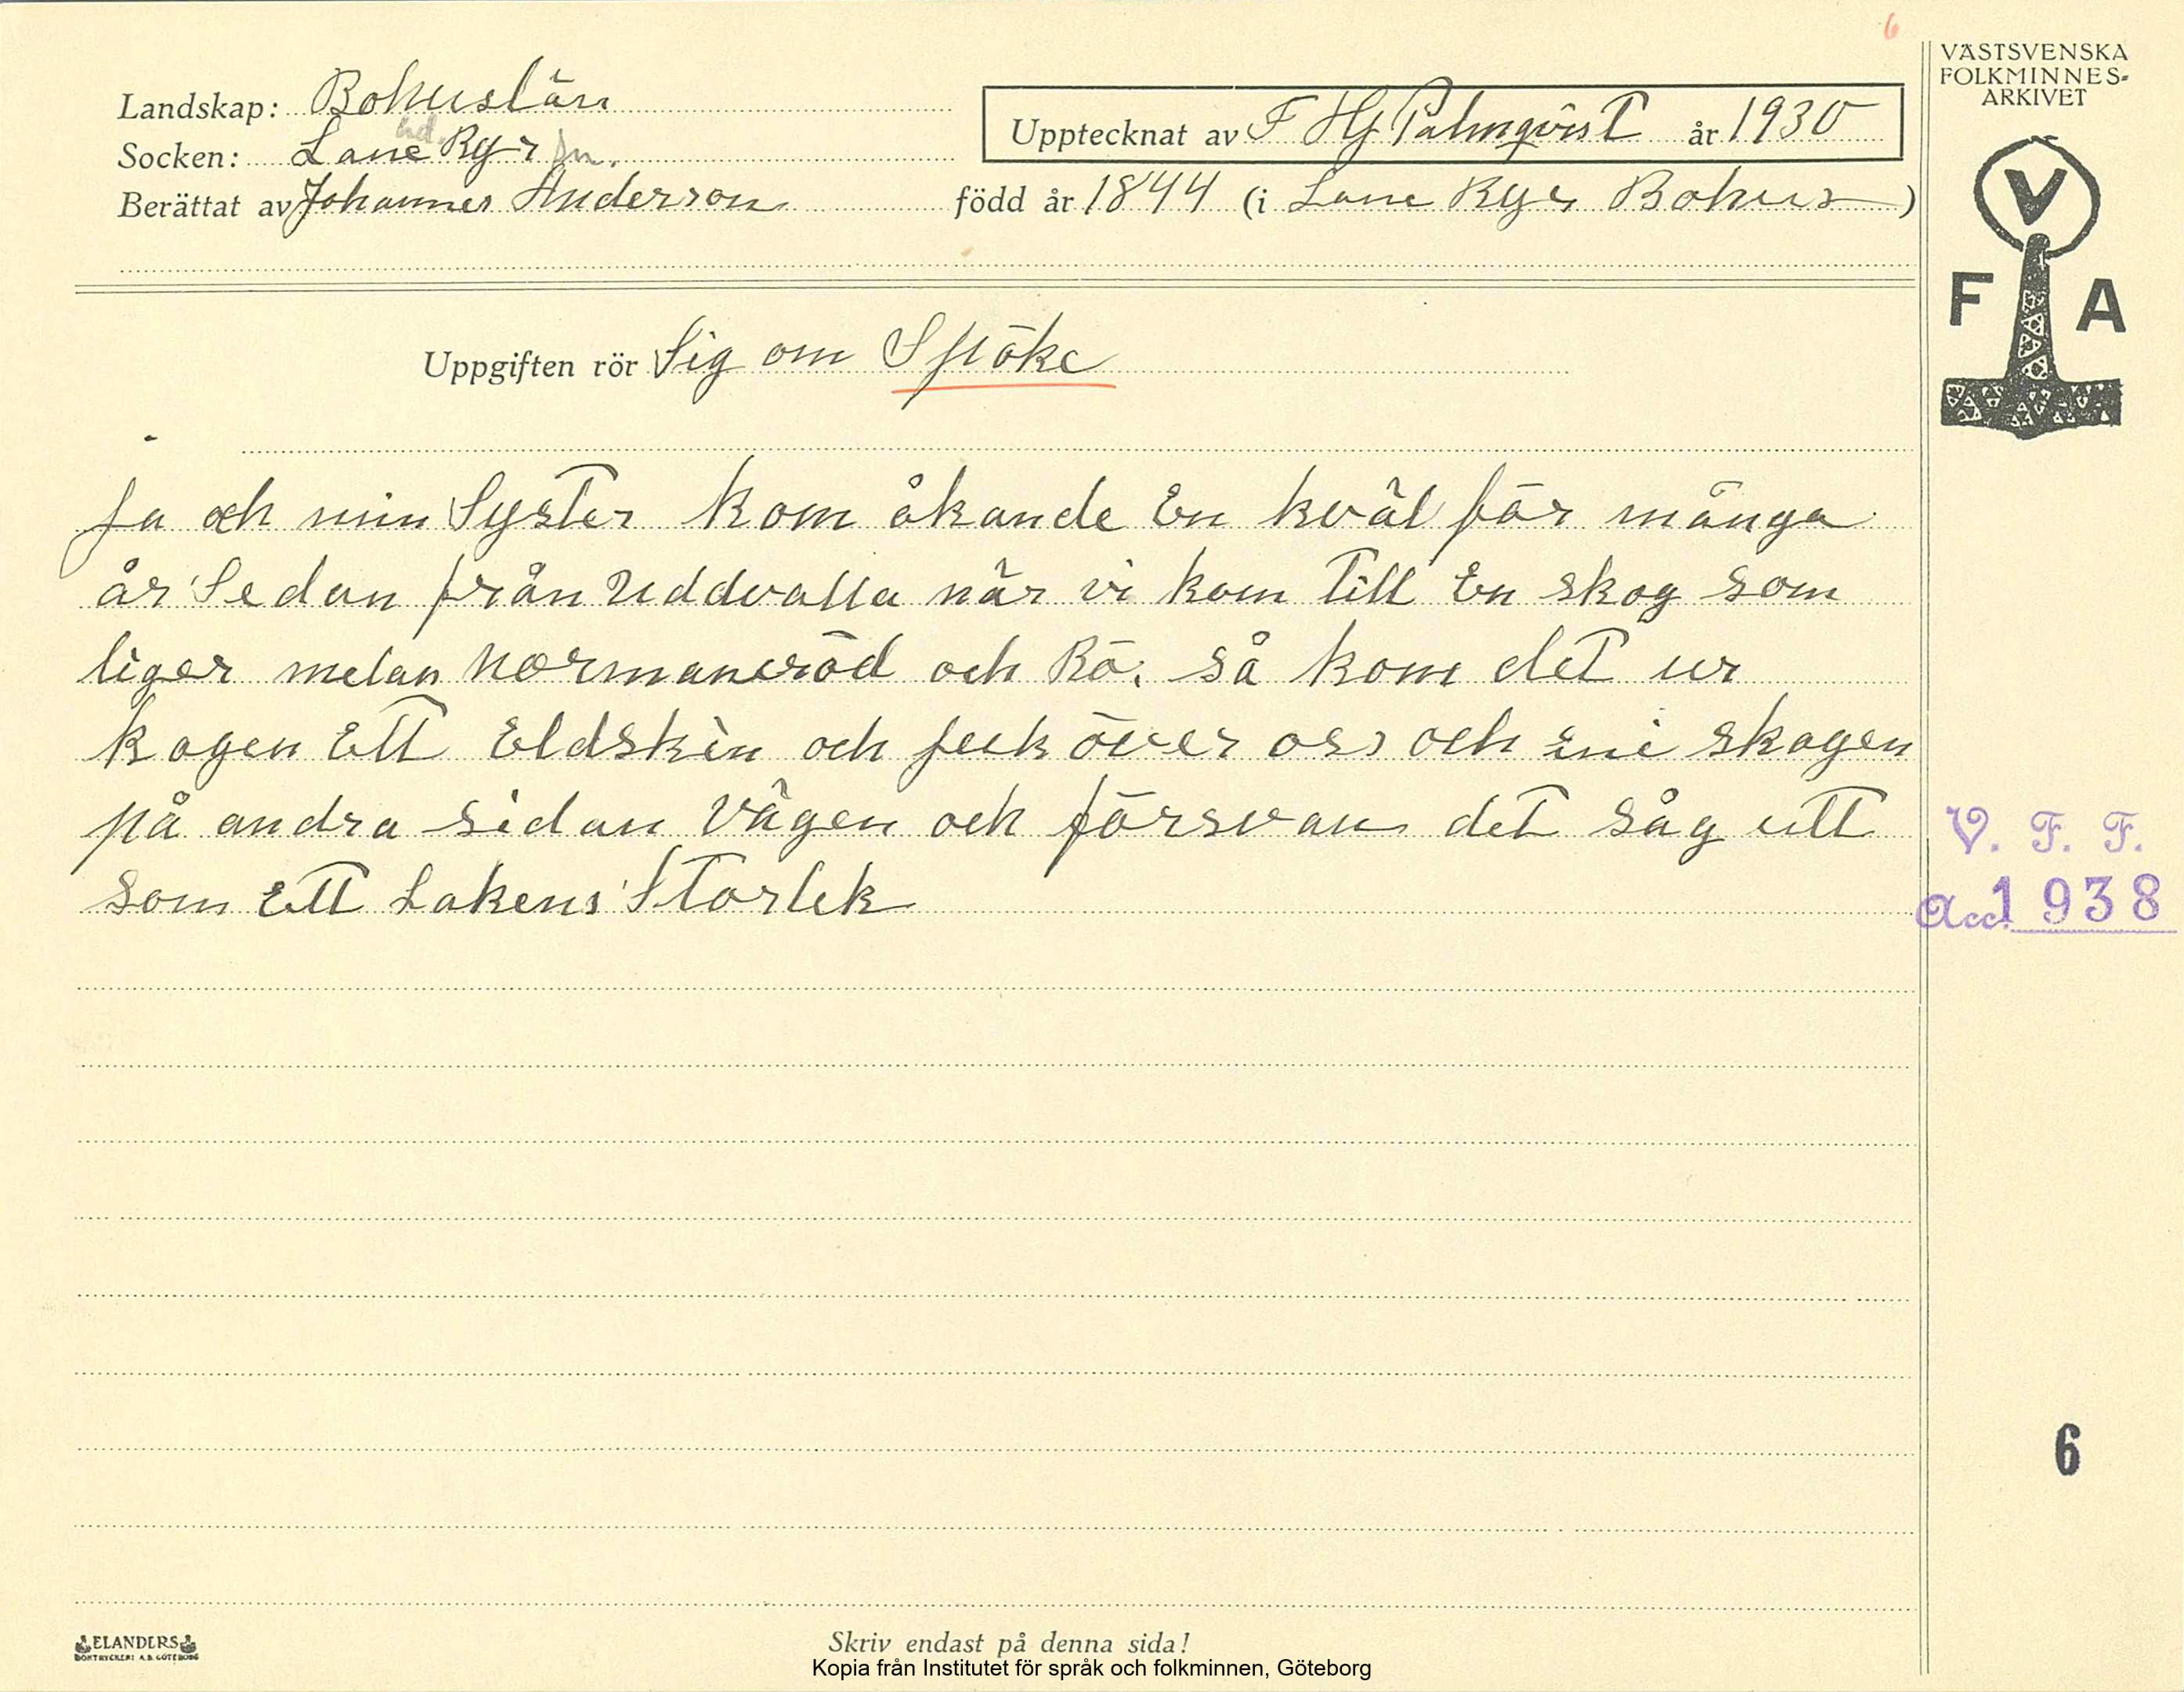 6
VÄSTSVENSKA
FOLKMINNES-
ARKIVET
Landskap: Bohuslän
Upptecknat av F Hj Palmqvist år 1930
Socken: Lane Ryr sn.
Berättat av Johannes Anderson född år 1844 (i Lane Ryr Bohus)
V
F A
Uppgiften rör Sig om Spöke
Ja och min Syster kom åkande En kväl för många
år Sedan från Uddvalla när vi kom till En skog som
liger melan Normaneröd och Rö. så kom det ur
kogen Ett Eldskin och jeck över oss och ini skogen
på andra sidan Vägen och försvan det såg utt
som Ett Lakens Storlek
V. F. F.
Acc. 1938
6
ELANDERS
BOKTRYCKERI A.B. GÖTEBORG
Skriv endast på denna sida!
Kopia från Institutet för språk och folkminnen, Göteborg